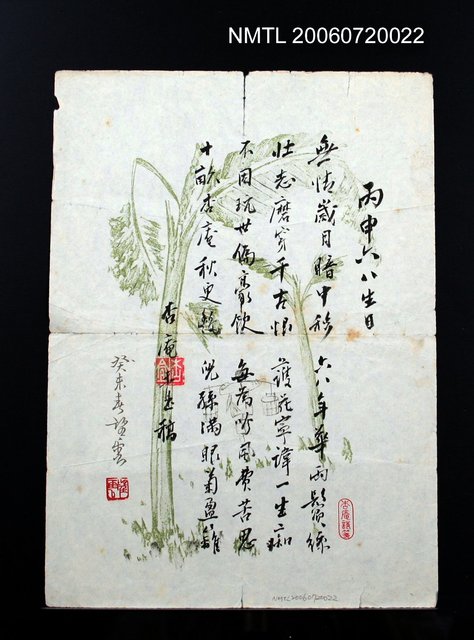 NMTL 20060720022
丙申六八生日
無情歲月暗中移 六八年華兩鬢絲
壯志磨穿千古恨 護花寧諱一生痴
不因玩世偏豪飲 每為吟用費苦思
十畝杏庵秋更 況 滿眼菊盈籬
杏庵 稿
癸未春
杏庵
NMTL20060720022